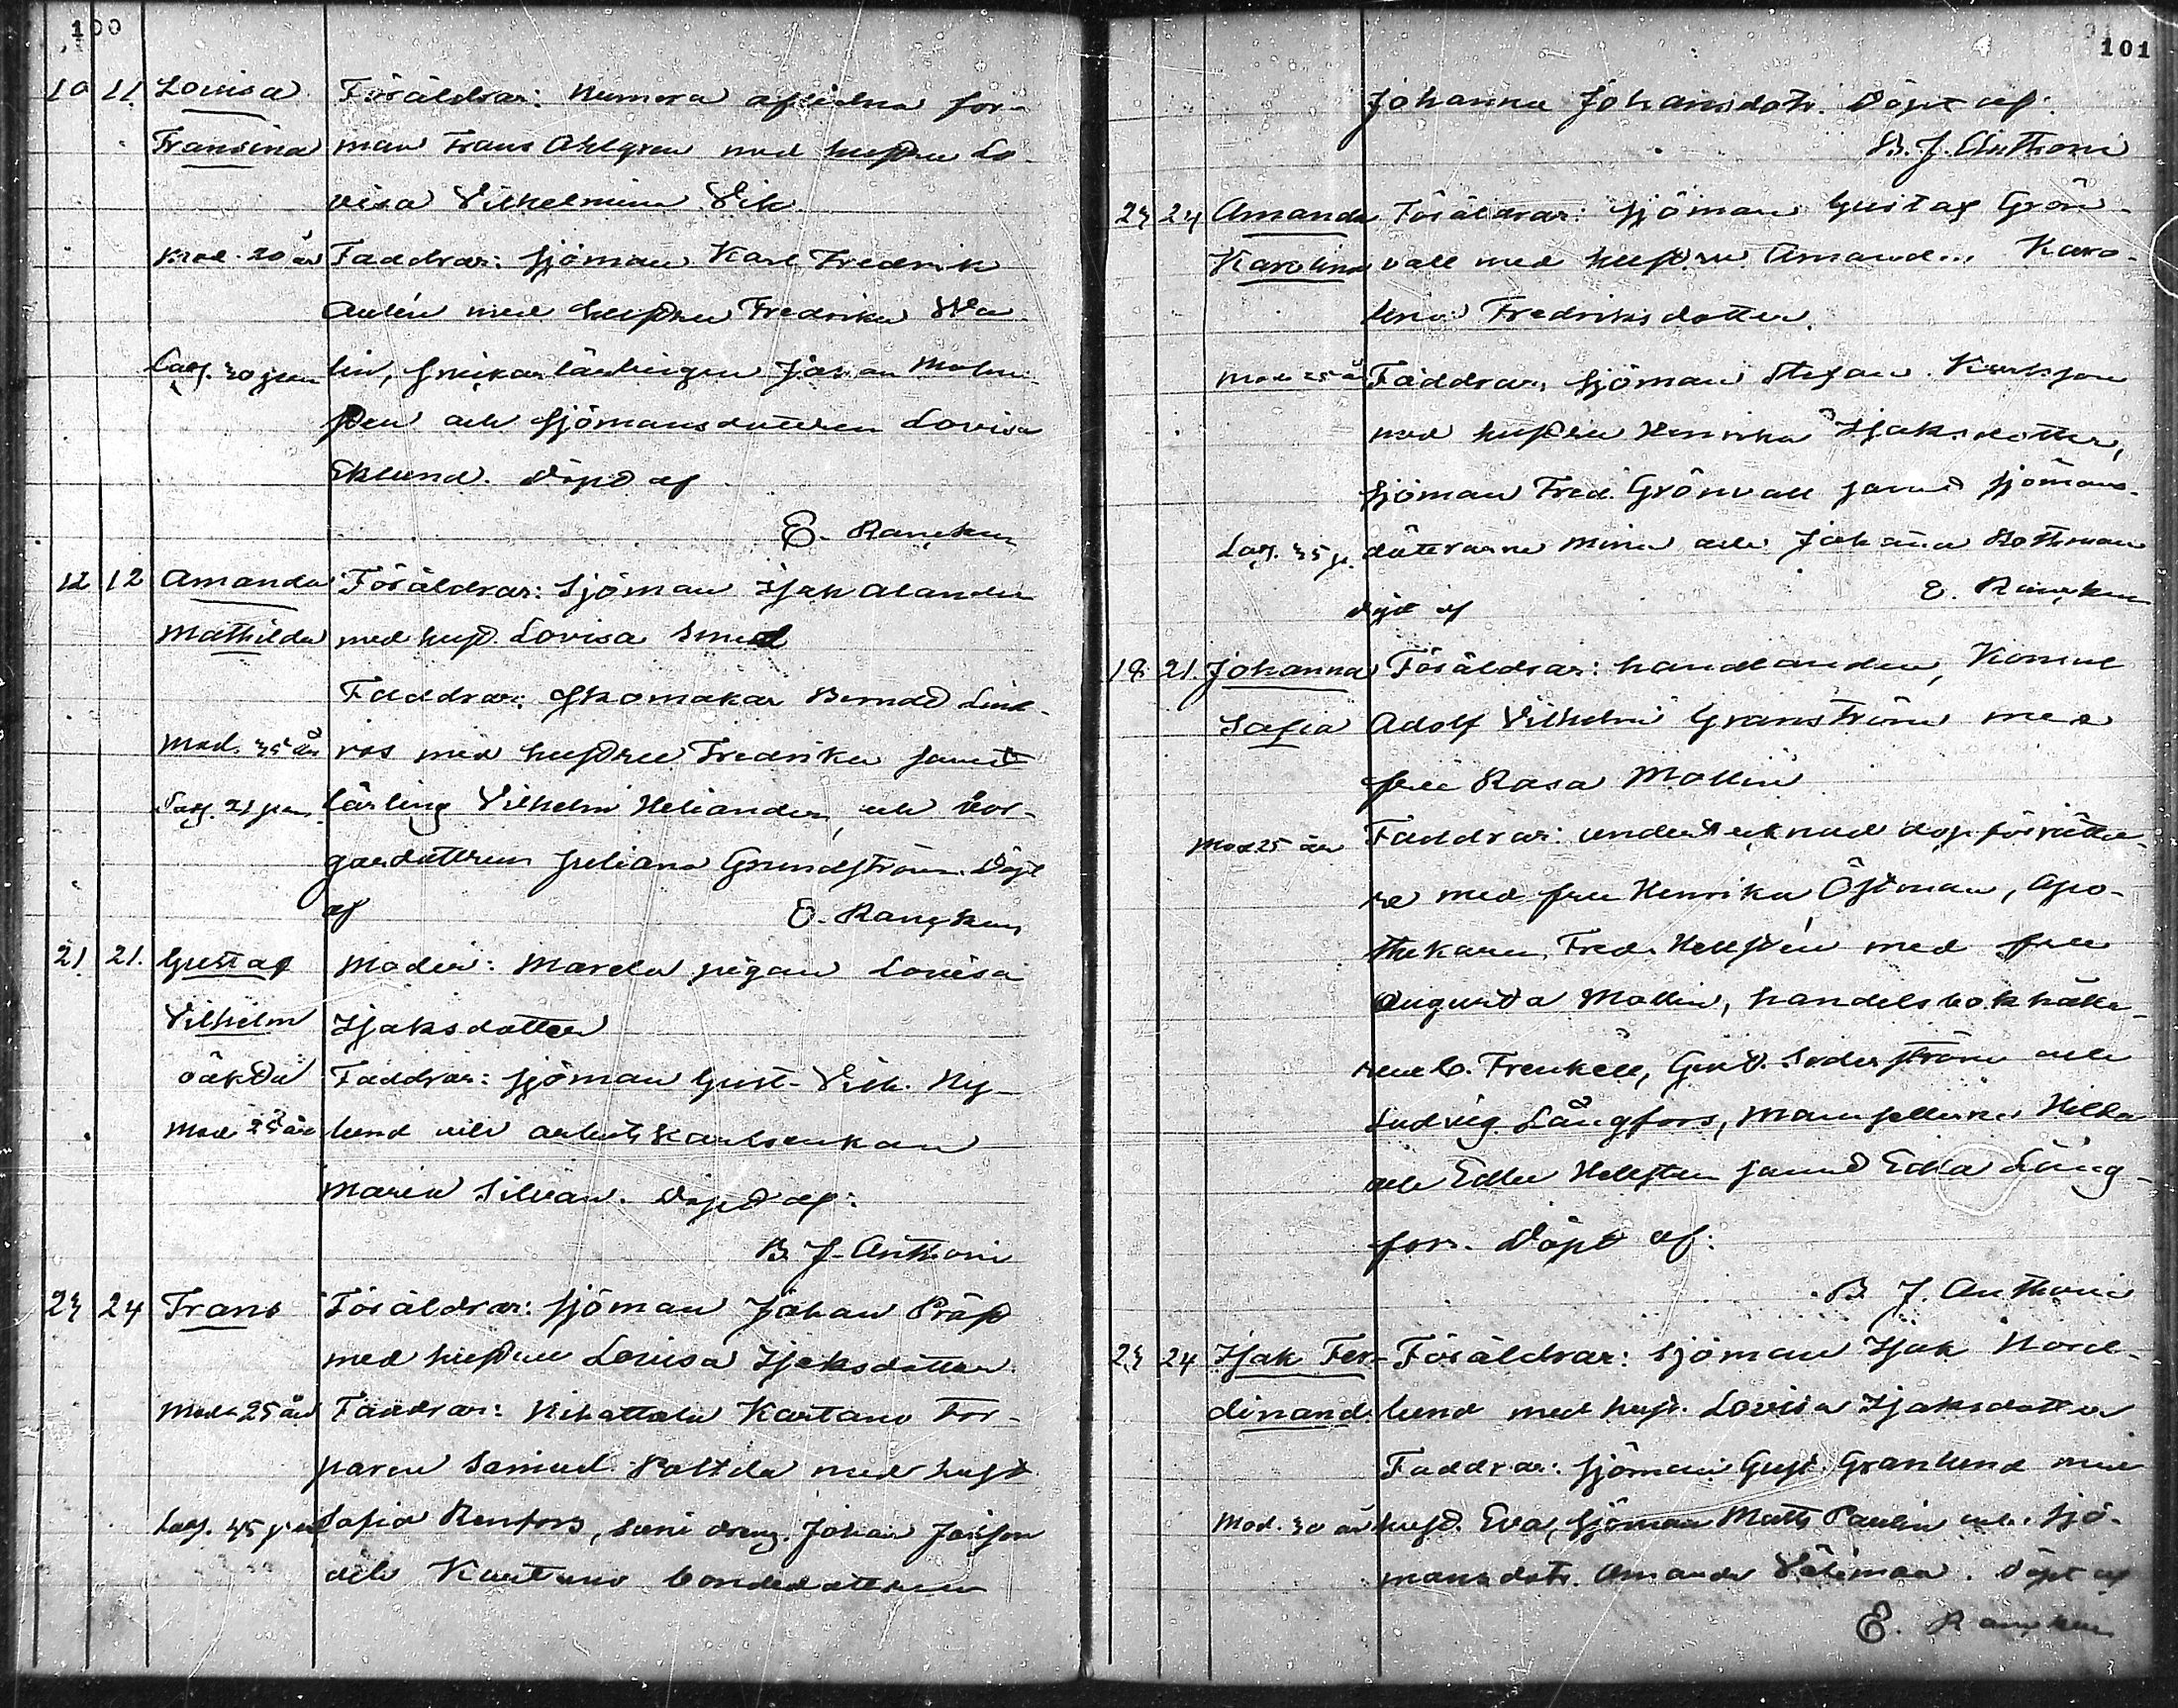 100
10 11. Lovisa Föräldrar: Numera aflidna for-
Fransina man Frans Ahlgren med hustru Lo-
visa Vilhelmina Vik
Mod. 20 år Faddrar: Sjöman Karl Fredrik
Aulin med hustru Fredrika Wa-
Lag. 30 jan lin, Snickarlärlingen Johan Malm-
sten och sjömansdottren Lovisa
Eklund. Döpt af
E. Rancken
12 12 Amanda Föräldrar: Sjöman Isak Alander
Mathilda med hust. Lovisa Smed
Faddrar: Skomakar Berndt Lind-
Mod. 35 år ros med hustru Fredrika samt
Lag. 21 jan. lärling Vilhelm Heliander, och bor-
gardottren Juliana Grundström. Döpt
af E. Rancken
21 21. Gustaf Moder: pigan Lovisa
Vilhelm Isaksdotter
oäkta Faddrar: Sjöman Gust. Vilh. Ny-
Mod. 25 år lund och arbetskarlsenkan
Maria Silvan. Döpt af:
B. J. Anthoni
23 24 Frans Föräldrar: Sjöman Johan Präst
med hustru Lovisa Isaksdotter
Mod. 25 år Faddrar: Kihattala Kartano Tor-
paren Samuel med hust
Lag. 45 Sofia Renfors, samt dreng. Johan
och Kartano bondedottren
101
Johanna Johansdotr. Döpt af:
B. J. Anthoni
23 24 Amanda Föräldrar: Sjöman Gustaf Grön-
Karolina vall med hustru Amanda Karo-
lina Fredriksdotter.
Mod. 25 år Faddrar, Sjöman Stefan Karlsson
med hustru Henrika Isaksdotter,
Sjöman Fred. Grönvall samt sjömans-
Lag. 35 döttrarne Mina och Johanna Bothman
Döpt af E. Rancken
18. 21. Johanna Föräldrar: handlanden, Konsul
Sofia Adolf Vilhelm Granström med
fru Rosa Mollin
Mod 25 år Faddrar: undertecknad dopförrätta-
re med fru Henrika Östman, Apo-
thekaren Fred. Hellsten med fru
Augusta Mollin, handelsbokhålla-
rene C. Frenkell, Gust. Söderström och
Ludvig Långfors, Mamsellerna Hilda
och Edla Hellsten samt Edla Lång-
fors. Döpt af:
B. J. Anthoni
23 24 Isak Fer- Föräldrar: Sjöman Isak Nord-
dinand. lund med hust. Lovisa Isaksdotter
Faddrar: Sjöman Gust. Granlund med
Mod. 30 år hust. Eva, Sjöman Matts Paulin och Sjö-
mansdotr. Amanda Välimaa. Döpt af
E. Rancken